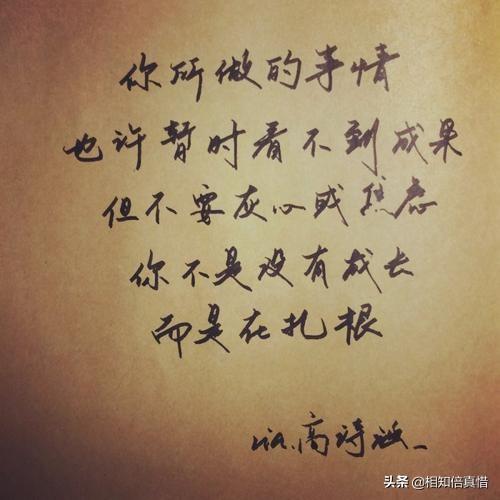 你所做的事情
也许暂时看不到成果
但不要灰心或焦虑
你不是没有成长
而是在扎根
via.高诗
头条 @相知倍真惜